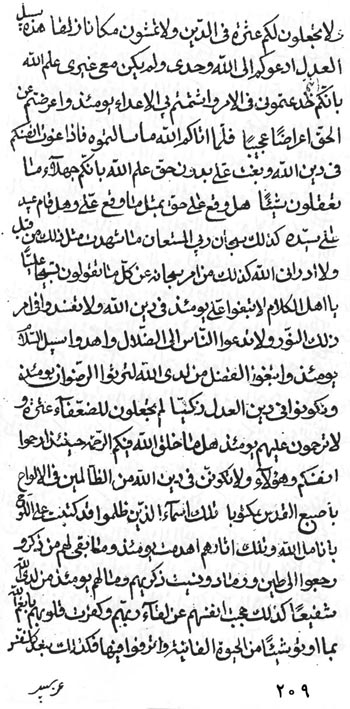 لا تجعلون لكم عثرة فى الدين ولا تمشون مكانا زلقا هذه سبل
العدل ادعوكم الى الله وحدى ولم يكن معى غيرى علم الله
بانكم خدعتمونى فى الامر واشتمتم بى الاعداء يومئذ واعرضتم عن
الحق اعراضا عجيبا فلما اتاكم الله ما سالتموه فاذا عوت انفسكم
فى دين الله وبغت على بدون حق علم الله بانكم جهلاء ما
تعقلون شيئا هل وقع على حق بمثل ما وقع على وهل قام عبد
على سيده كذلك سبحان ربى المستعان ما شهدت مثل ذلك من قبل
ولا ارانى الله كذلك من امر سبحانه عن كل ما تقولون تسبيحا عليا
يا اهل الكلام لا تبغوا على يومئذ فى دين الله ولا تفسدوا فى امر
ذلك النور ولا تدعوا الناس الى الضلال واهدوا سبل السلام
يومئذ وابتغوا الفضل من لدى الله لترثوا الرضوان يومئذ
وتكونوا فى دين العدل زكيا لم تجعلون للضعفاء عثرة و
لا ترحمون عليهم يومئذ هل ما خلق الله فيكم الرحم حينئذ ارحموا
انفسكم وهؤلاء ولا تكونن فى دين الله من الظالمين فى الالواح
باصبع القدس مكتوبا تلك اسماء الذين ظلموا قد كتبت على اللوح
بانامل الله وتلك اثارهم اهدمت يومئذ وما بقى لهم من ذكر و
رجعوا الى طين ورماد وفنيت ذكريهم وما لهم يومئذ من لدى الله
شفيعا كذلك حجبت انفسهم عن لقاء ربهم وكفرت قلوبهم بايات الله
بما اوتوا شيئا من الحيوة الفانية واترفوا فيها فكذلك بعد كل نفس
عن سبيل
٢٠٩